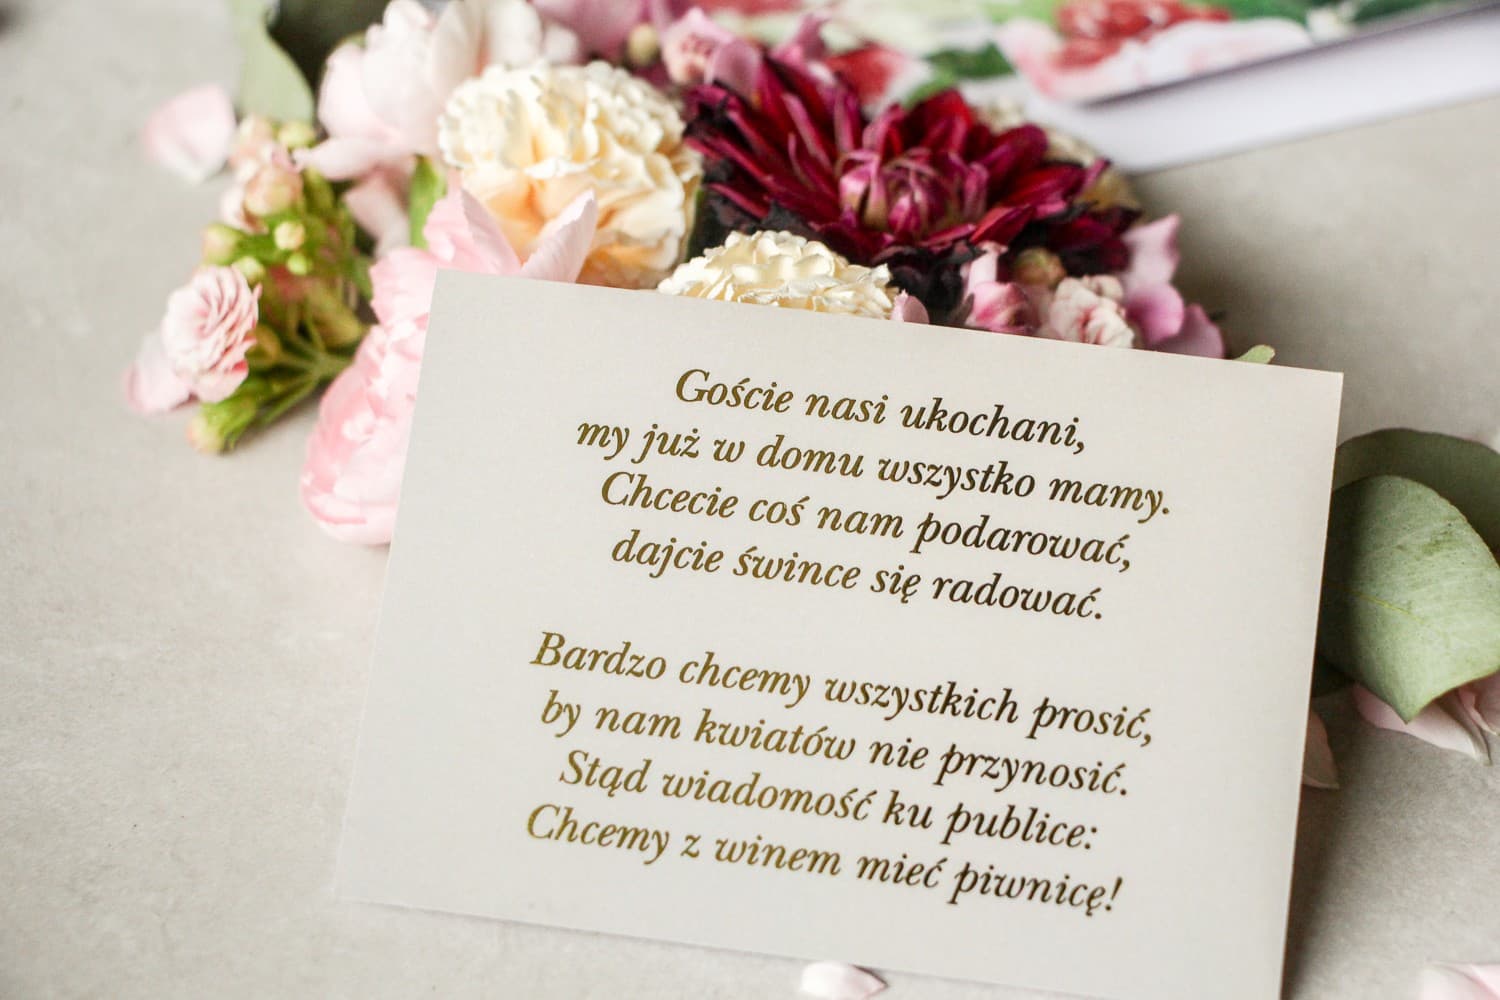 Goście nasi ukochani,
my już w domu wszystko mamy.
Chcecie coś nam podarować,
dajcie śwince się radować.
Bardzo chcemy wszystkich prosić,
by nam kwiatów nie przynosić.
Stąd wiadomość ku publice:
Chcemy z winem mieć piwnicę!